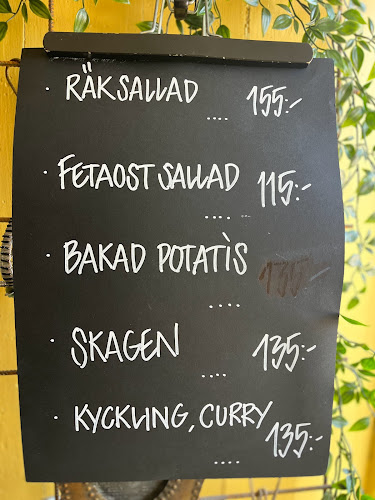 · RÄKSALLAD 155:-
....
· FETAOST SALLAD 115:-
....
· BAKAD POTATÌS 135:-
....
· SKAGEN 135:-
....
· KYCKLING, CURRY 135:-
....